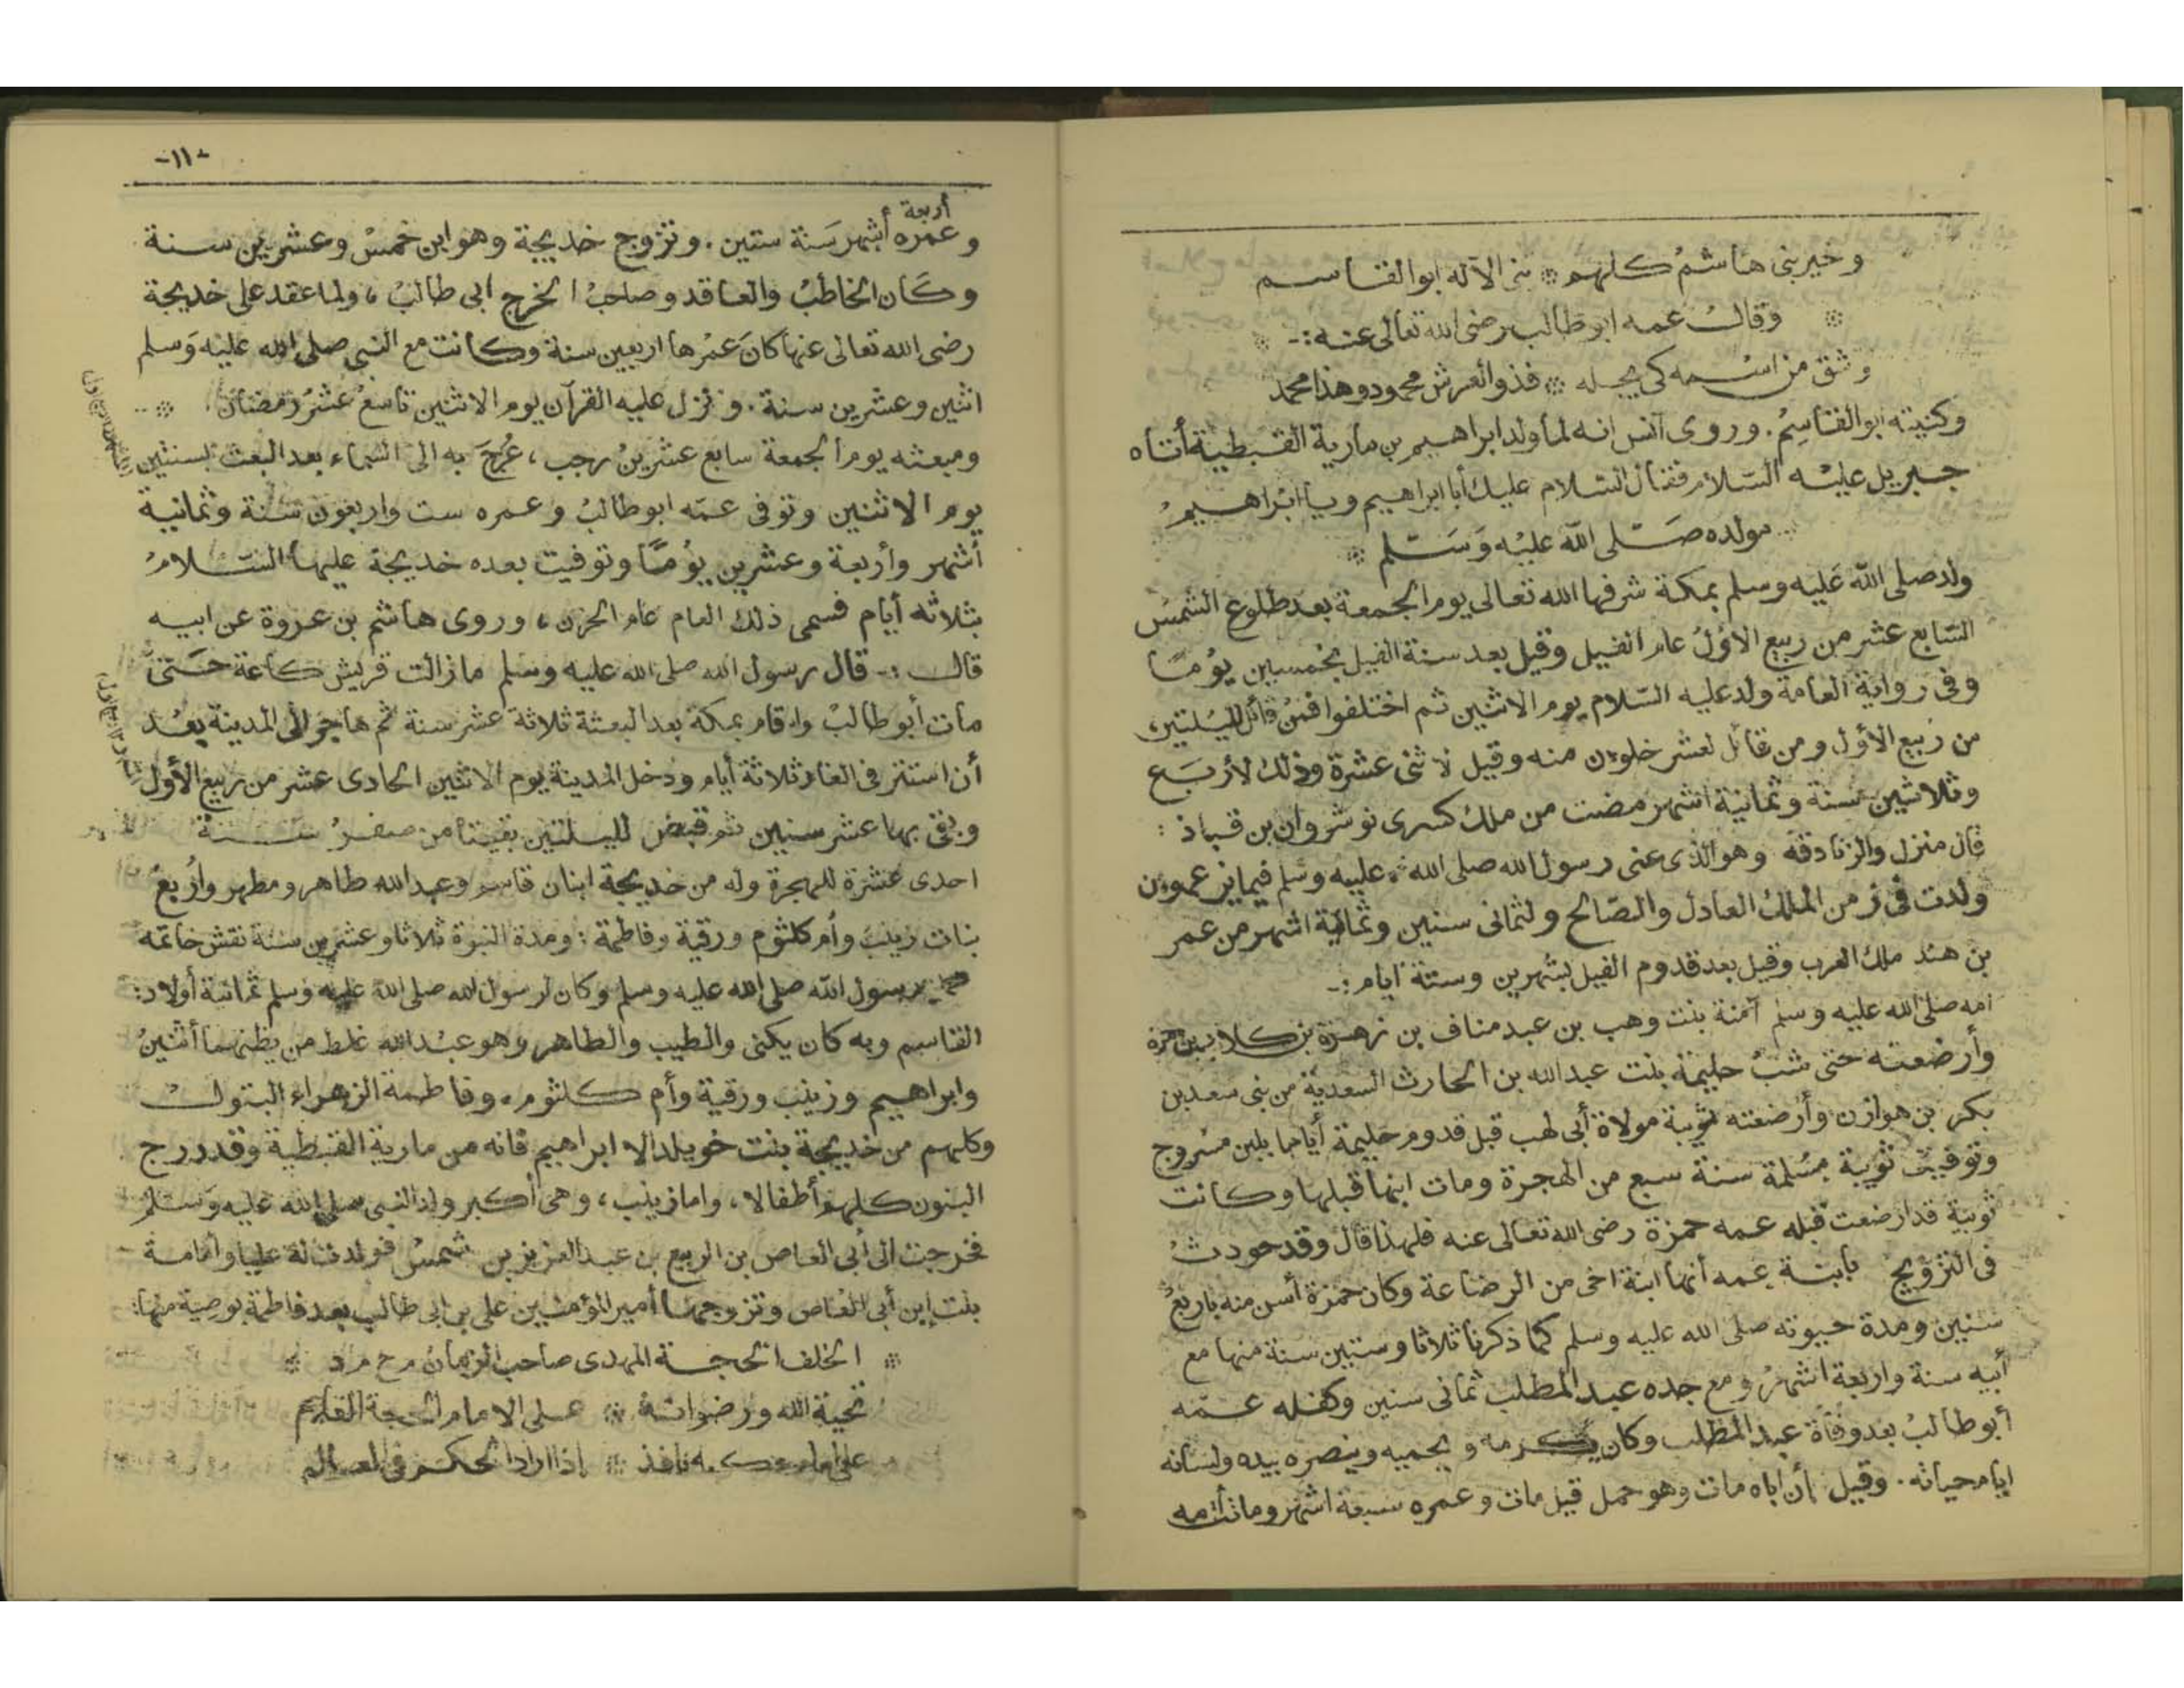 وخير بنى هاشم كلهم * بنى الآله ابوالقاسم
* وقال عمه ابوطالب رضى الله تعالى عنه :- *
وشق من اسمه كى يجله * فذوالعرش محمود وهذا محمد
وكنيته ابوالقاسم . وروى آنس انه لما ولد ابراهيم بن مارية القبطية أتاه
جبريل عليه السلام فقال السلام عليك أبا ابراهيم ويا ابراهيم
مولده صلى الله عليه وسلم *
ولد صلى الله عليه وسلم بمكة شرفها الله تعالى يوم الجمعة بعد طلوع الشمس
السابع عشر من ربيع الاول عام الفيل وقيل بعد سنة الفيل بخمسين يوما
وفى رواية العامة ولد عليه السلام يوم الاثنين ثم اختلفوا فمن قائل لليلتين
من ربيع الأول ومن قائل لعشر خلون منه وقيل لاثنى عشرة وذلك لأربع
وثلاثين سنة وثمانية اشهر مضت من ملك كسرى نوشروان بن قباذ :
قال منزل والزنادقه وهو الذى عنى رسول الله صلى الله عليه وسلم فيما يزعمون
ولدت فى زمن الملك العادل والصالح ولثمانى سنين وثمانية اشهر من عمر
بن هند ملك العرب وقيل بعد قدوم الفيل بشهرين وستة ايام :-
امه صلى الله عليه وسلم آمنة بنت وهب بن عبد مناف بن زهرة بن كلاب بن مرة
وأرضعته حتى شب حليمة بنت عبدالله بن الحارث السعدية من بنى سعد بن
بكر بن هوازن وأرضعته ثويبة مولاة أبى لهب قبل قدوم حليمة أياما بلبن مسروج
وتوفيت ثويبة مسلمة سنة سبع من الهجرة ومات ابنها قبلها وكانت
ثويبة قد ارضعت قبله عمه حمزة رضى الله تعالى عنه فلهذا قال وقد حودث
فى التزويج بابنة عمه أنها ابنة اخى من الرضاعة وكان حمزة أسن منه باربع
سنين ومدة حيوته صلى الله عليه وسلم كما ذكرنا ثلاثا وستين سنة منها مع
أبيه سنة واربعة اشهر ومع جده عبد المطلب ثمانى سنين وكفله عمه
أبوطالب بعد وفاة عبد المطلب وكان يكرمه ويحميه وينصره بيده ولسانه
ايام حياته . وقيل أن اباه مات وهو حمل قيل مات وعمره سبعة اشهر وماتت أمه
-١١-
أربعة
وعمره أشهر سنة ستين . وتزوج خديجة وهو ابن خمس وعشرين سنة
وكان الخاطب والعاقد وصاحب الخرج ابى طالب ، ولما عقد على خديجة
رضى الله تعالى عنها كان عمرها اربعين سنة وكانت مع النبى صلى الله عليه وسلم
اثنين وعشرين سنة . ونزل عليه القرآن يوم الاثنين تاسع عشر رمضان . *
ومبعثه يوم الجمعة سابع عشرين رجب ، عُرِجَ به الى السماء بعد البعث لسنتين
يوم الاثنين وتوفى عمه ابوطالب وعمره ست واربعون سنة وثمانية
أشهر وأربعة وعشرين يوما وتوفيت بعده خديجة عليها السلام
بثلاثه أيام فسمى ذلك العام عام الحزن ، وروى هاشم بن عروة عن ابيه
قال :- قال رسول الله صلى الله عليه وسلم ما زالت قريش كاعة حتى
مات أبوطالب واقام بمكة بعد البعثة ثلاثة عشر سنة ثم هاجر الى المدينة بعد
أن استتر فى الغار ثلاثة أيام ودخل المدينة يوم الاثنين الحادى عشر من ربيع الأول
وبقى بها عشر سنين ثم قبض لليلتين بقيتا من صفر سنة
احدى عشرة للهجرة وله من خديجة ابنان قاسم وعبدالله طاهر ومطهر وأربع
بنات زينب وأم كلثوم ورقية وفاطمة : ومدة النبوة ثلاثا وعشرين سنة نقش خاتمه
محمد رسول الله صلى الله عليه وسلم وكان لرسول الله صلى الله عليه وسلم ثمانية أولاد :
القاسم وبه كان يكنى والطيب والطاهر وهو عبدالله غلط من يظنهما أثنين
وابراهيم وزينب ورقية وأم كلثوم ، وفاطمة الزهراء البتول
وكلهم من خديجة بنت خويلد الا ابراهيم فانه من مارية القبطية وقد درج
البنون كلهم أطفالا ، واما زينب ، وهى أكبر ولد النبى صلى الله عليه وسلم
فخرجت الى أبى العاص بن الربيع بن عبد العزيز بن شمس فولدت له عليا وأمامة
بنت ابن أبى العاص وتزوجها أمير المؤمنين على بن ابى طالب بعد فاطمة بوصية منها :
* الخلف الحجة المهدى صاحب الزمان م ح م د *
تحية الله ورضوانه * على الامام الحجة القائم
على امام حكمه نافذ * إذا اراد الحكم فى العالم